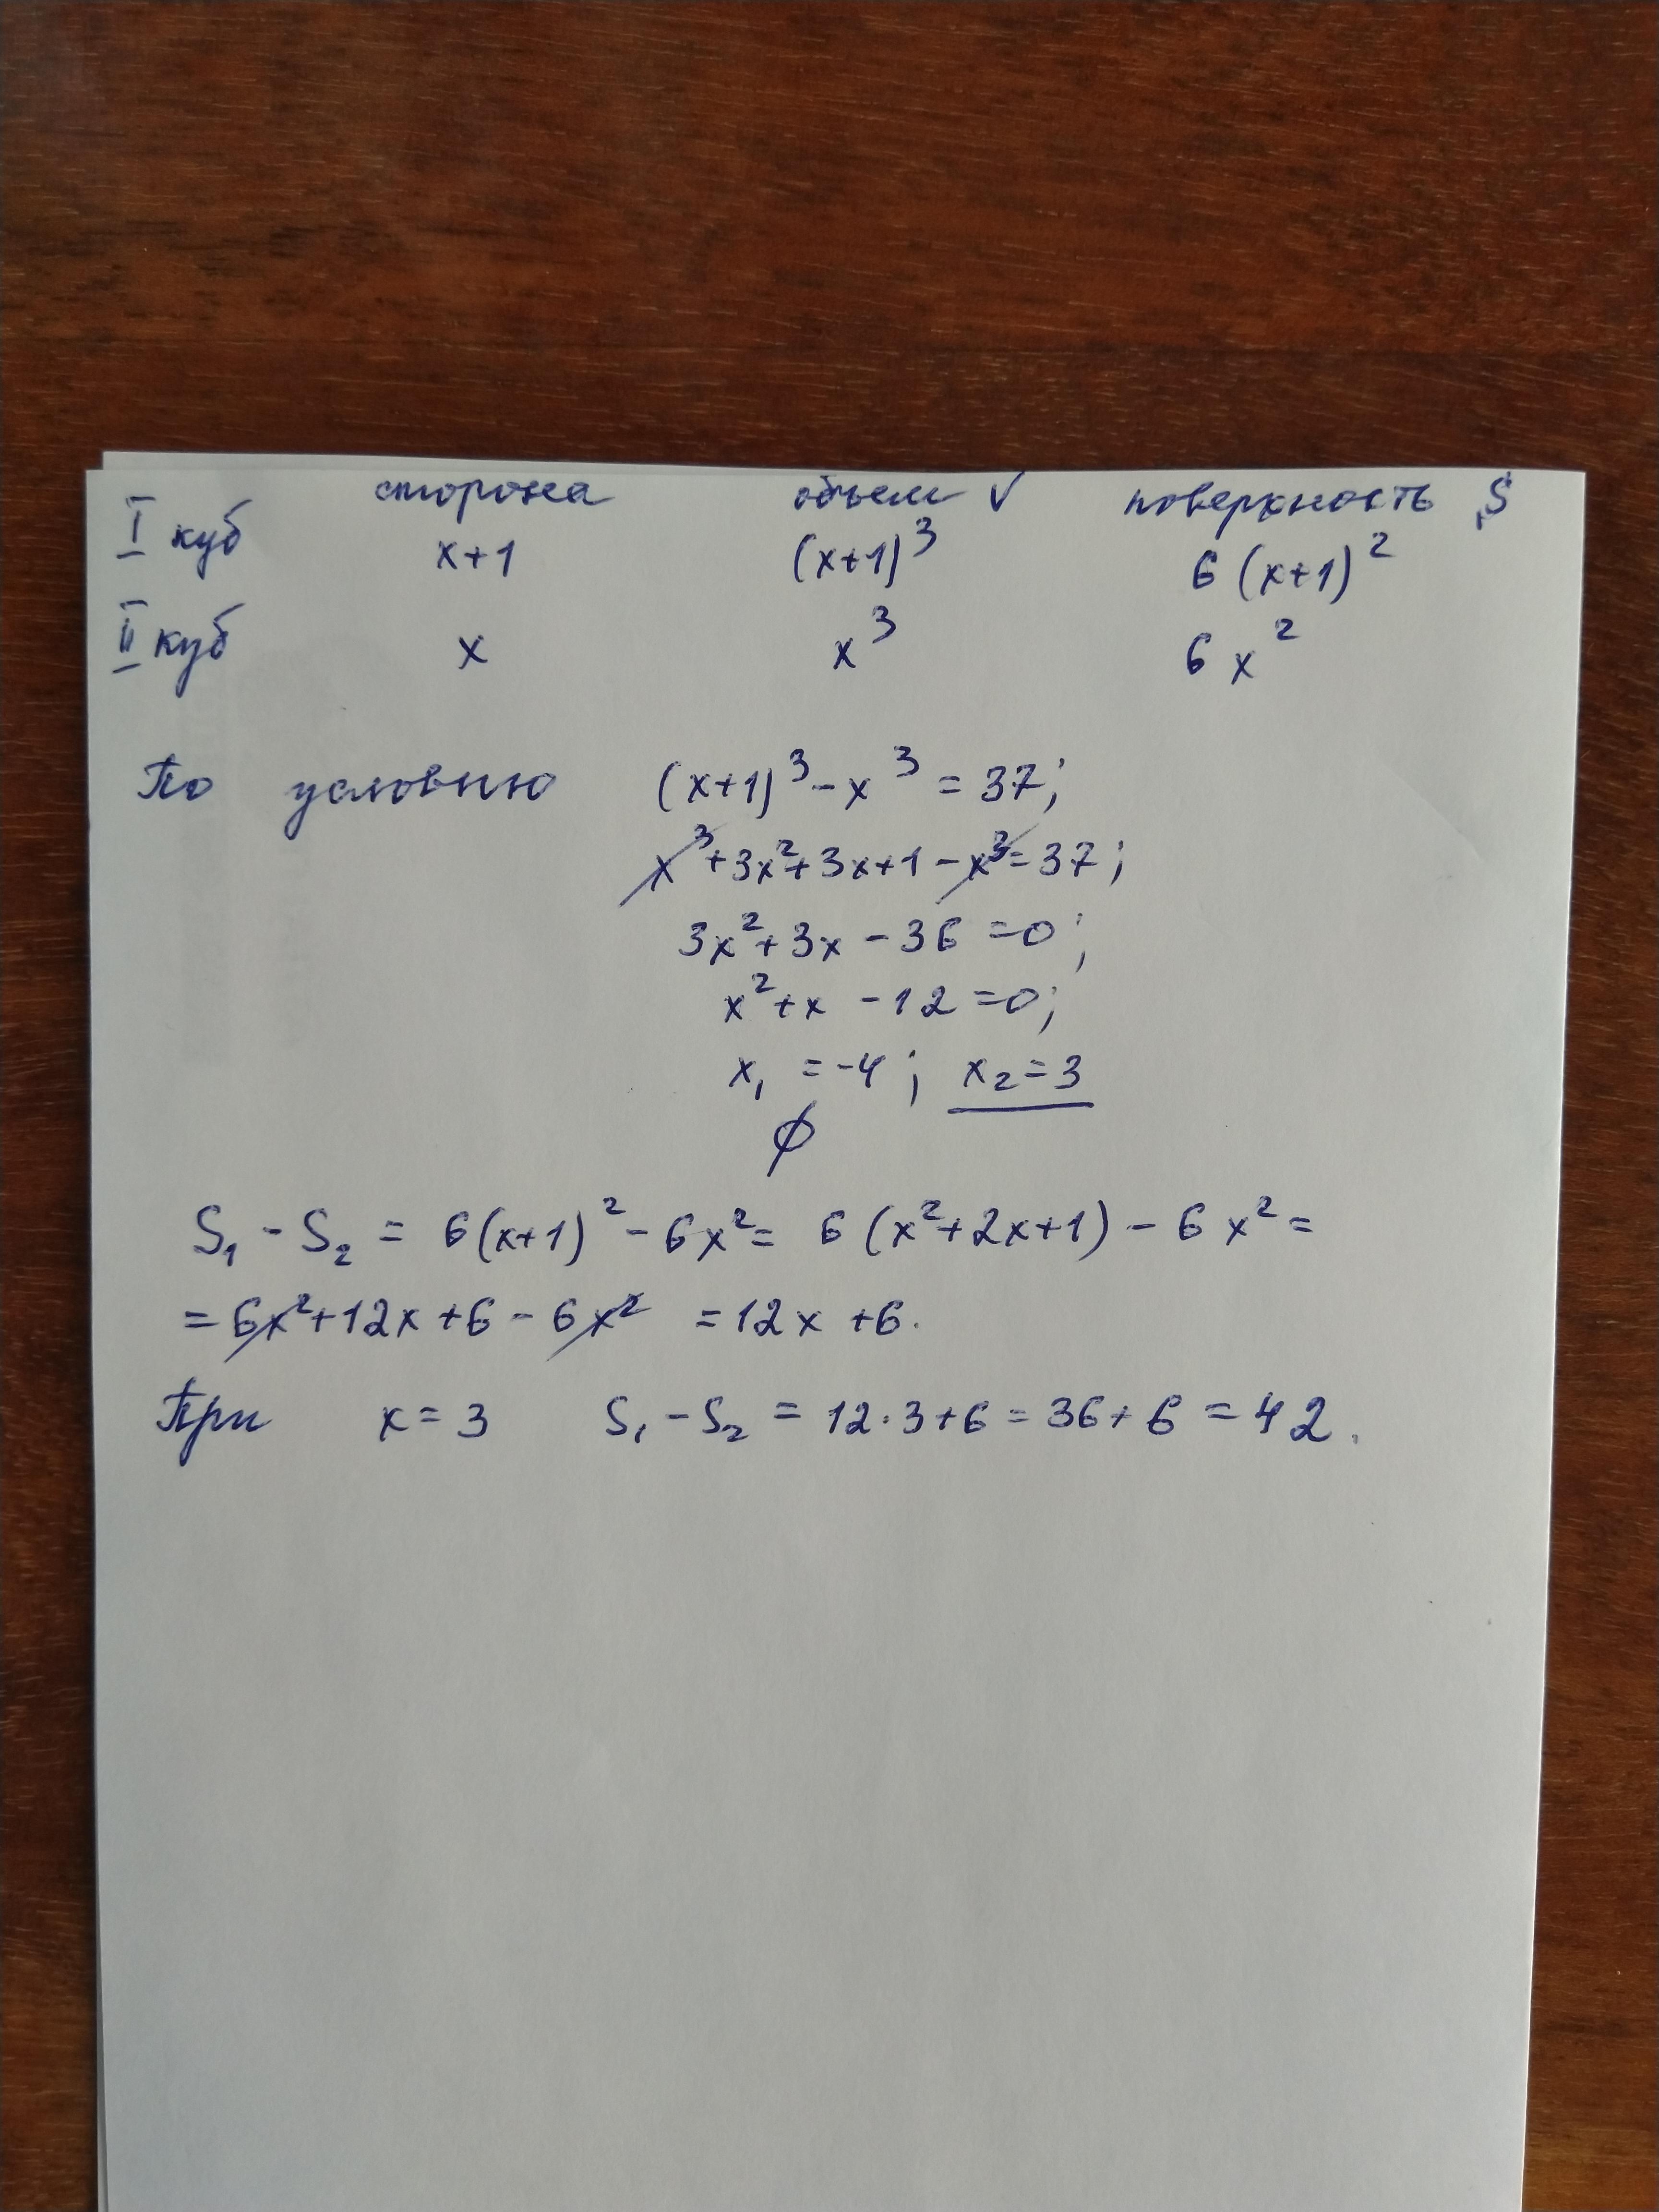 сторона объем V поверхность S
I куб x+1 (x+1)³ 6(x+1)²
II куб x x³ 6x²
По условию (x+1)³ - x³ = 37;
x³+3x²+3x+1-x³=37;
3x²+3x-36=0;
x²+x-12=0;
x₁=-4; x₂=3
∅
S₁-S₂ = 6(x+1)²-6x²= 6(x²+2x+1)-6x²=
=6x²+12x+6-6x² =12x+6.
При x=3 S₁-S₂ = 12·3+6=36+6=42.